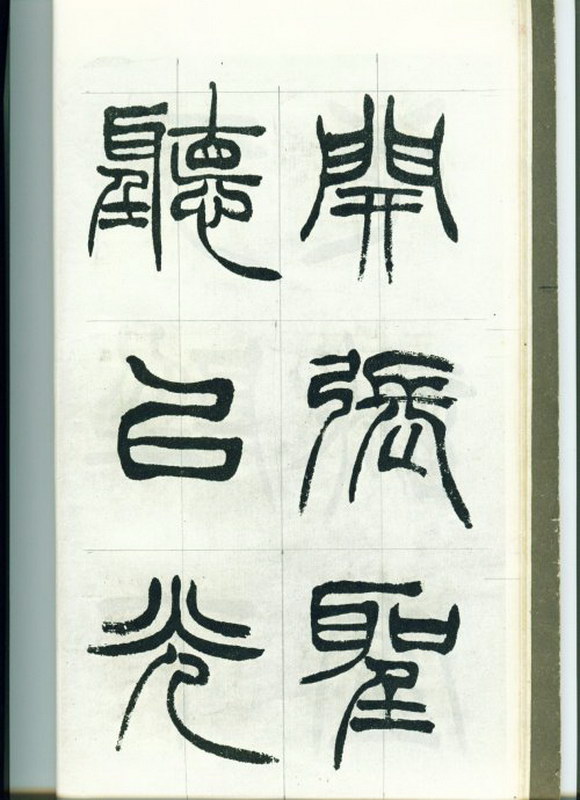 開張聖
聽以光